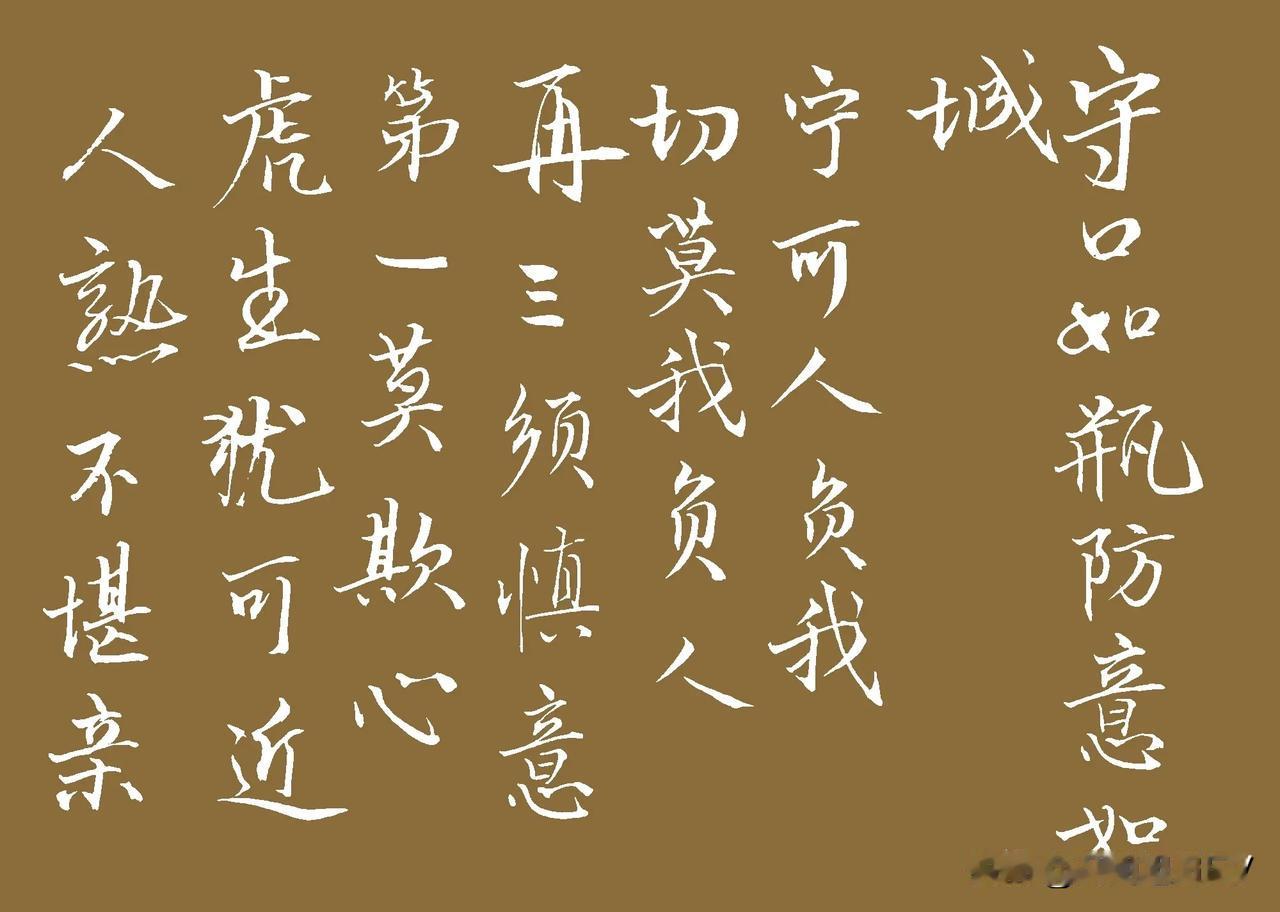 守口如瓶防意如
城
宁可人负我
切莫我负人
再三须慎意
第一莫欺心
虎生犹可近
人熟不堪亲